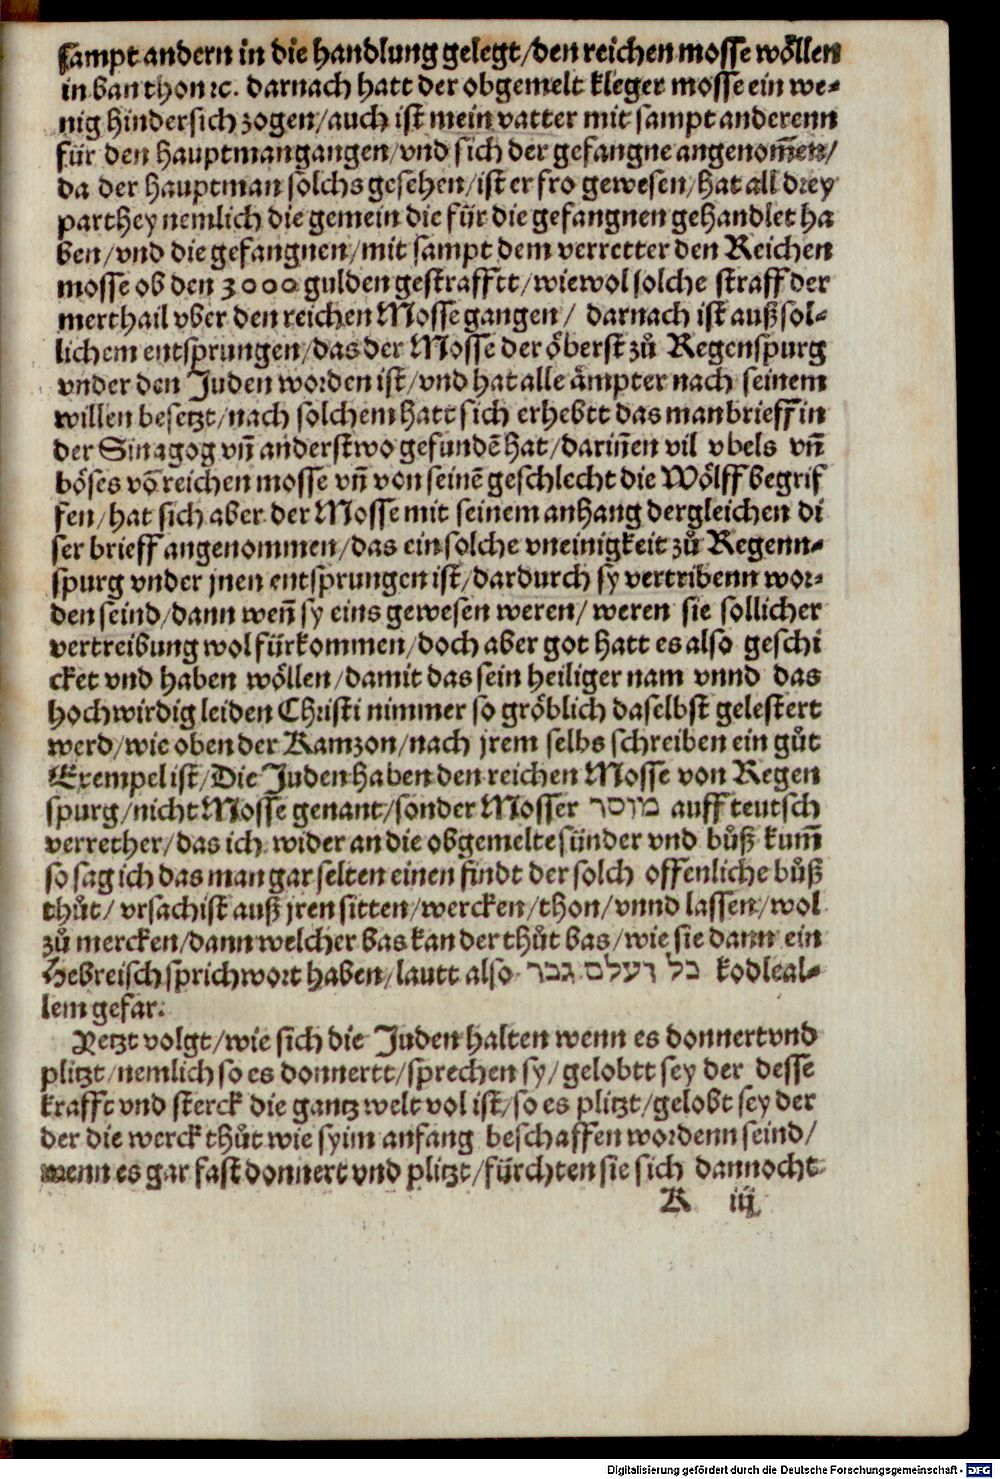 sampt andern in die handlung gelegt/den reichen mosse wöllen
in ban thon ꝛc. darnach hatt der obgemelt kleger mosse ein we⸗
nig hindersich zogen/auch ist mein vatter mit sampt anderenn
für den hauptman gangen/vnd sich der gefangne angenom̅en/
da der hauptman sölchs gesehen/ist er fro gewesen/hat all drey
parthey nemlich die gemein die für die gefangnen gehandlet ha
ben/vnd die gefangnen/mit sampt dem verretter den Reichen
mosse ob den 3000 gulden gestrafftt/wiewol solche straff der
merthail vber den reichen Mosse gangen/ darnach ist auß sol⸗
lichem entsprungen/das der Mosse der öberst zů Regenspurg
vnder den Juden worden ist/vnd hat alle ämpter nach seinem
willen besetzt/nach solchem hatt sich erhebtt das man brieff in
der Sinagog vn̅ anderstwo gefundē hat/darin̅en vil vbels vn̅
böses vō reichen mosse vn̅ von seinē geschlecht die Wölff begrif
fen/hat sich aber der Mosse mit seinem anhang dergleichen di
ser brieff angenommen/das ein solche vneinigkeit zů Regenn⸗
spurg vnder jnen entsprungen ist/dardurch sy vertribenn wor⸗
den seind/dann wen̅ sy eins gewesen weren/ weren sie sollicher
vertreibung wol fürkommen/doch aber got hatt es also geschi
cket vnd haben wöllen/damit das sein heiliger nam vnnd das
hochwirdig leiden Christi nimmer so gröblich daselbst gelestert
werd/wie oben der Ramzon/nach jrem selbs schreiben ein gůt
Exempel ist/Die Juden haben den reichen Mosse von Regen
spurg/nicht Mosse genant/sonder Mosser מוסר auff teutsch
verrether/das ich wider an die obgemelte sünder vnd bůß kum̅
so sag ich das man gar selten einen findt der solch offenliche bůß
thůt/ vrsach ist auß jren sitten/wercken/thon/vnnd lassen/wol
zů mercken/dann welcher bas kan der thůt bas/wie sie dann ein
Hebreisch sprichwort haben/lautt also כל דעלם גבר kodleal⸗
lem gefar.
Yetzt volgt/wie sich die Juden halten wenn es donnert vnd
plitzt/nemlich so es donnertt/sprechen sy/gelobtt sey der desse
krafft vnd sterck die gantz welt vol ist/so es plitzt/gelobt sey der
der die werck thůt wie sy im anfang beschaffen wordenn seind/
wenn es gar fast donnert vnd plitzt/fürchten sie sich dannocht
K iij
Digitalisierung gefördert durch die Deutsche Forschungsgemeinschaft - DFG